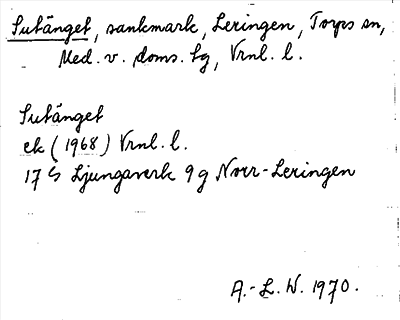 Sutänget, sankmark, Leringen, Torps sn,
Med. v. doms. tg, Vrnl. l.
Sutänget
ek (1968) Vrnl. l.
17 G Ljungaverk 9g Norr-Leringen
A.-L. W. 1970.